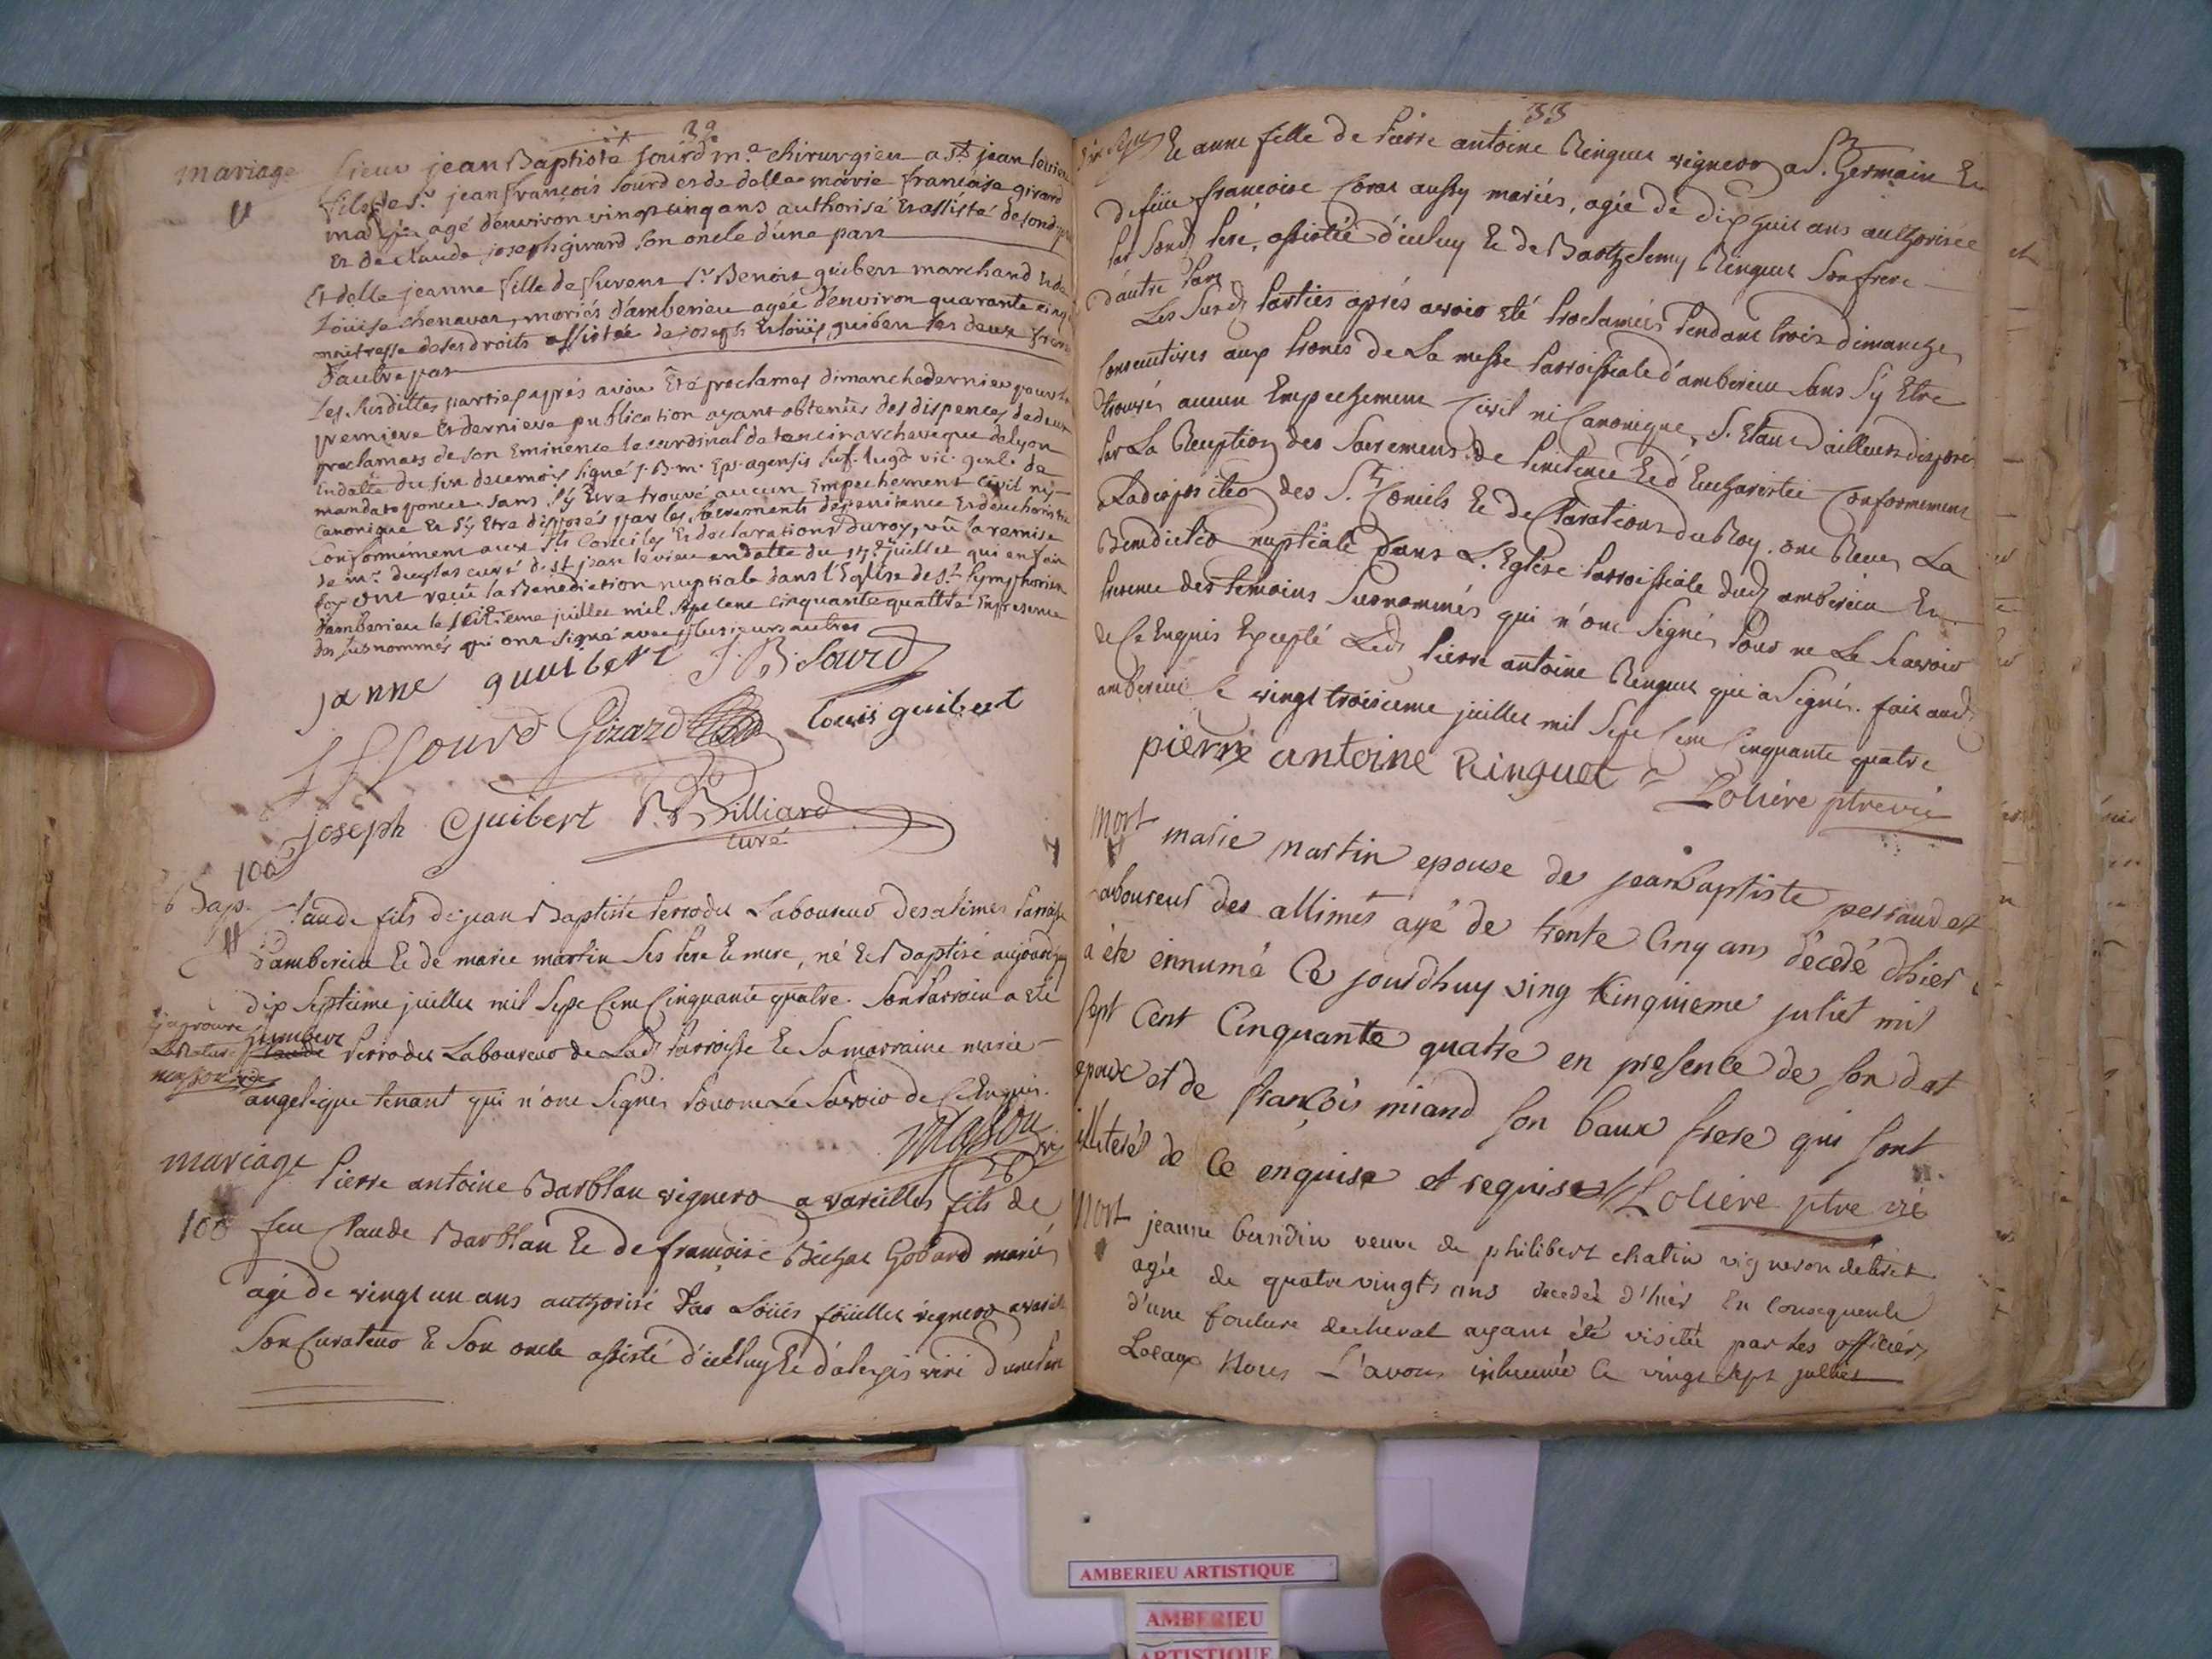 32
mariage
Sieur jean Baptiste sourd me chirurgien a St jean levieu
fils de Sr jean françois Sourd et de delle marie françoise girard
mariés agé d'environ vingt cinq ans authorisé et assisté de sond pere
et de claude joseph girard son oncle d'une part
Et delle jeanne fille de Sr Benoit guibert marchand et de
Loüise chenavar, mariés d'amberieu agée d'environ quarante cinq
maitresse de ses droits assistée de joseph et loüis guibert ses deux freres
d'autre part
Les susdittes parties aprés avoir Eté proclamés dimanche dernier pour la
premiere et derniere publication ayant obtenües des dispences de deux
proclamats de son Eminence le cardinal de tencin archeveque de lyon
En datte du six du mois signé J. B. m. Eps. agensis suf. lugd. vic. genl. de
mandato poncet. sans s'y Etre trouvé aucun Empechement civil ny
canonique Et s'y Etre disposés par les sacrements de penitence Et d'eucharistie
conformément aux Sts conciles Et declarations du roy, vu la remise
de mr duglas curé de st jean levieu en datte du 15e juillet qui en fait
foy ont reçu la Benediction nuptiale dans l'Eglise de st Symphorien
d'amberieu le seizieme juillet mil sept cent cinquante quattre En presence
des susnommés qui ont signé avec plusieurs autres
janne guuibert J. B. Sourd
J F Sourd Girard Louis guibert
joseph Guibert B. Billiard
curé
100
Bap.
Claude fils de jean Baptiste Perrodet Laboureur des alimes Parroisse
d'amberieu Et de marie martin ses Pere Et mere, né Et Baptisé aujourdhuy
dix septieme juillet mil Sept Cent Cinquante quatre. Son Parrain a Eté
humbert
Claude Perrodet Laboureur de Lad Parroisse Et Sa marraine marie
angelique tenant qui n'ont Signés Pour ne Le Savoir de Ce Enquis.
Masson vic
mariage
Pierre antoine Barblan vigneron a vareilles fils de
100
feu Claude Barblan Et de françoise Bichat Gobard mariés
agé de vingt un ans authorisé Par Loüis foüillet vigneron a vareille
Son Curateur Et Son oncle assisté d'icelluy Et d'alexis viri d'une Part
33
Et anne fille de Pierre antoine Ringuet vigneron a St Germain Et
de feüe françoise Corat aussy mariés, agée de dix huit ans authorisée
Par Sond Pere, assistée d'iceluy Et de Barthelemy Ringuet Son frere
d'autre Part
Les Susd Parties aprés avoir Eté Proclamées Pendant trois dimanches
Consecutives aux Prones de La messe Parroissiale d'amberieu Sans S'y Etre
trouvés aucun Empechement Civil ni Canonique, S. Etant d'ailleurs disposés
Par La Reception des Sacremens de Penitence Et d'Eucharistie Conformement
a La disposition des Sts Conciles Et declarations du Roy. ont Receu La
Benediction nuptiale dans L'Eglise Parroissiale dud amberieu En
Presence des temoins Susnommés qui n'ont Signés Pour ne Le Scavoir
de Ce Enquis Excepté Led Pierre antoine Ringuet qui a Signé. fait aud
amberieu le vingt troisieme juillet mil Sept Cent Cinquante quatre
pierre antoine Ringuet Loliere ptre vic
Mort
marie martin epouse de jean Baptiste perraudet
Laboureur des allimes ayé de trente Cinq ans décedé dhier
a éte ennumé Ce jourdhuy ving Cinquieme juliet mil
sept Cent Cinquante quatre en presence de son dat
epoux et de françois miand son baux frere qui sont
illiterés de Ce enquise et requise Loliere ptre vic
Mort
jeanne bundin veuve de philibert chatin vigneron de tiret
agée de quatre vingts ans decedée d'hier En consequence
d'une foulure de cheval ayant été visitée par les officiers
Locaux Nous l'avons inhumée le vingt sept juillet
AMBERIEU ARTISTIQUE
AMBERIEU
ARTISTIQUE